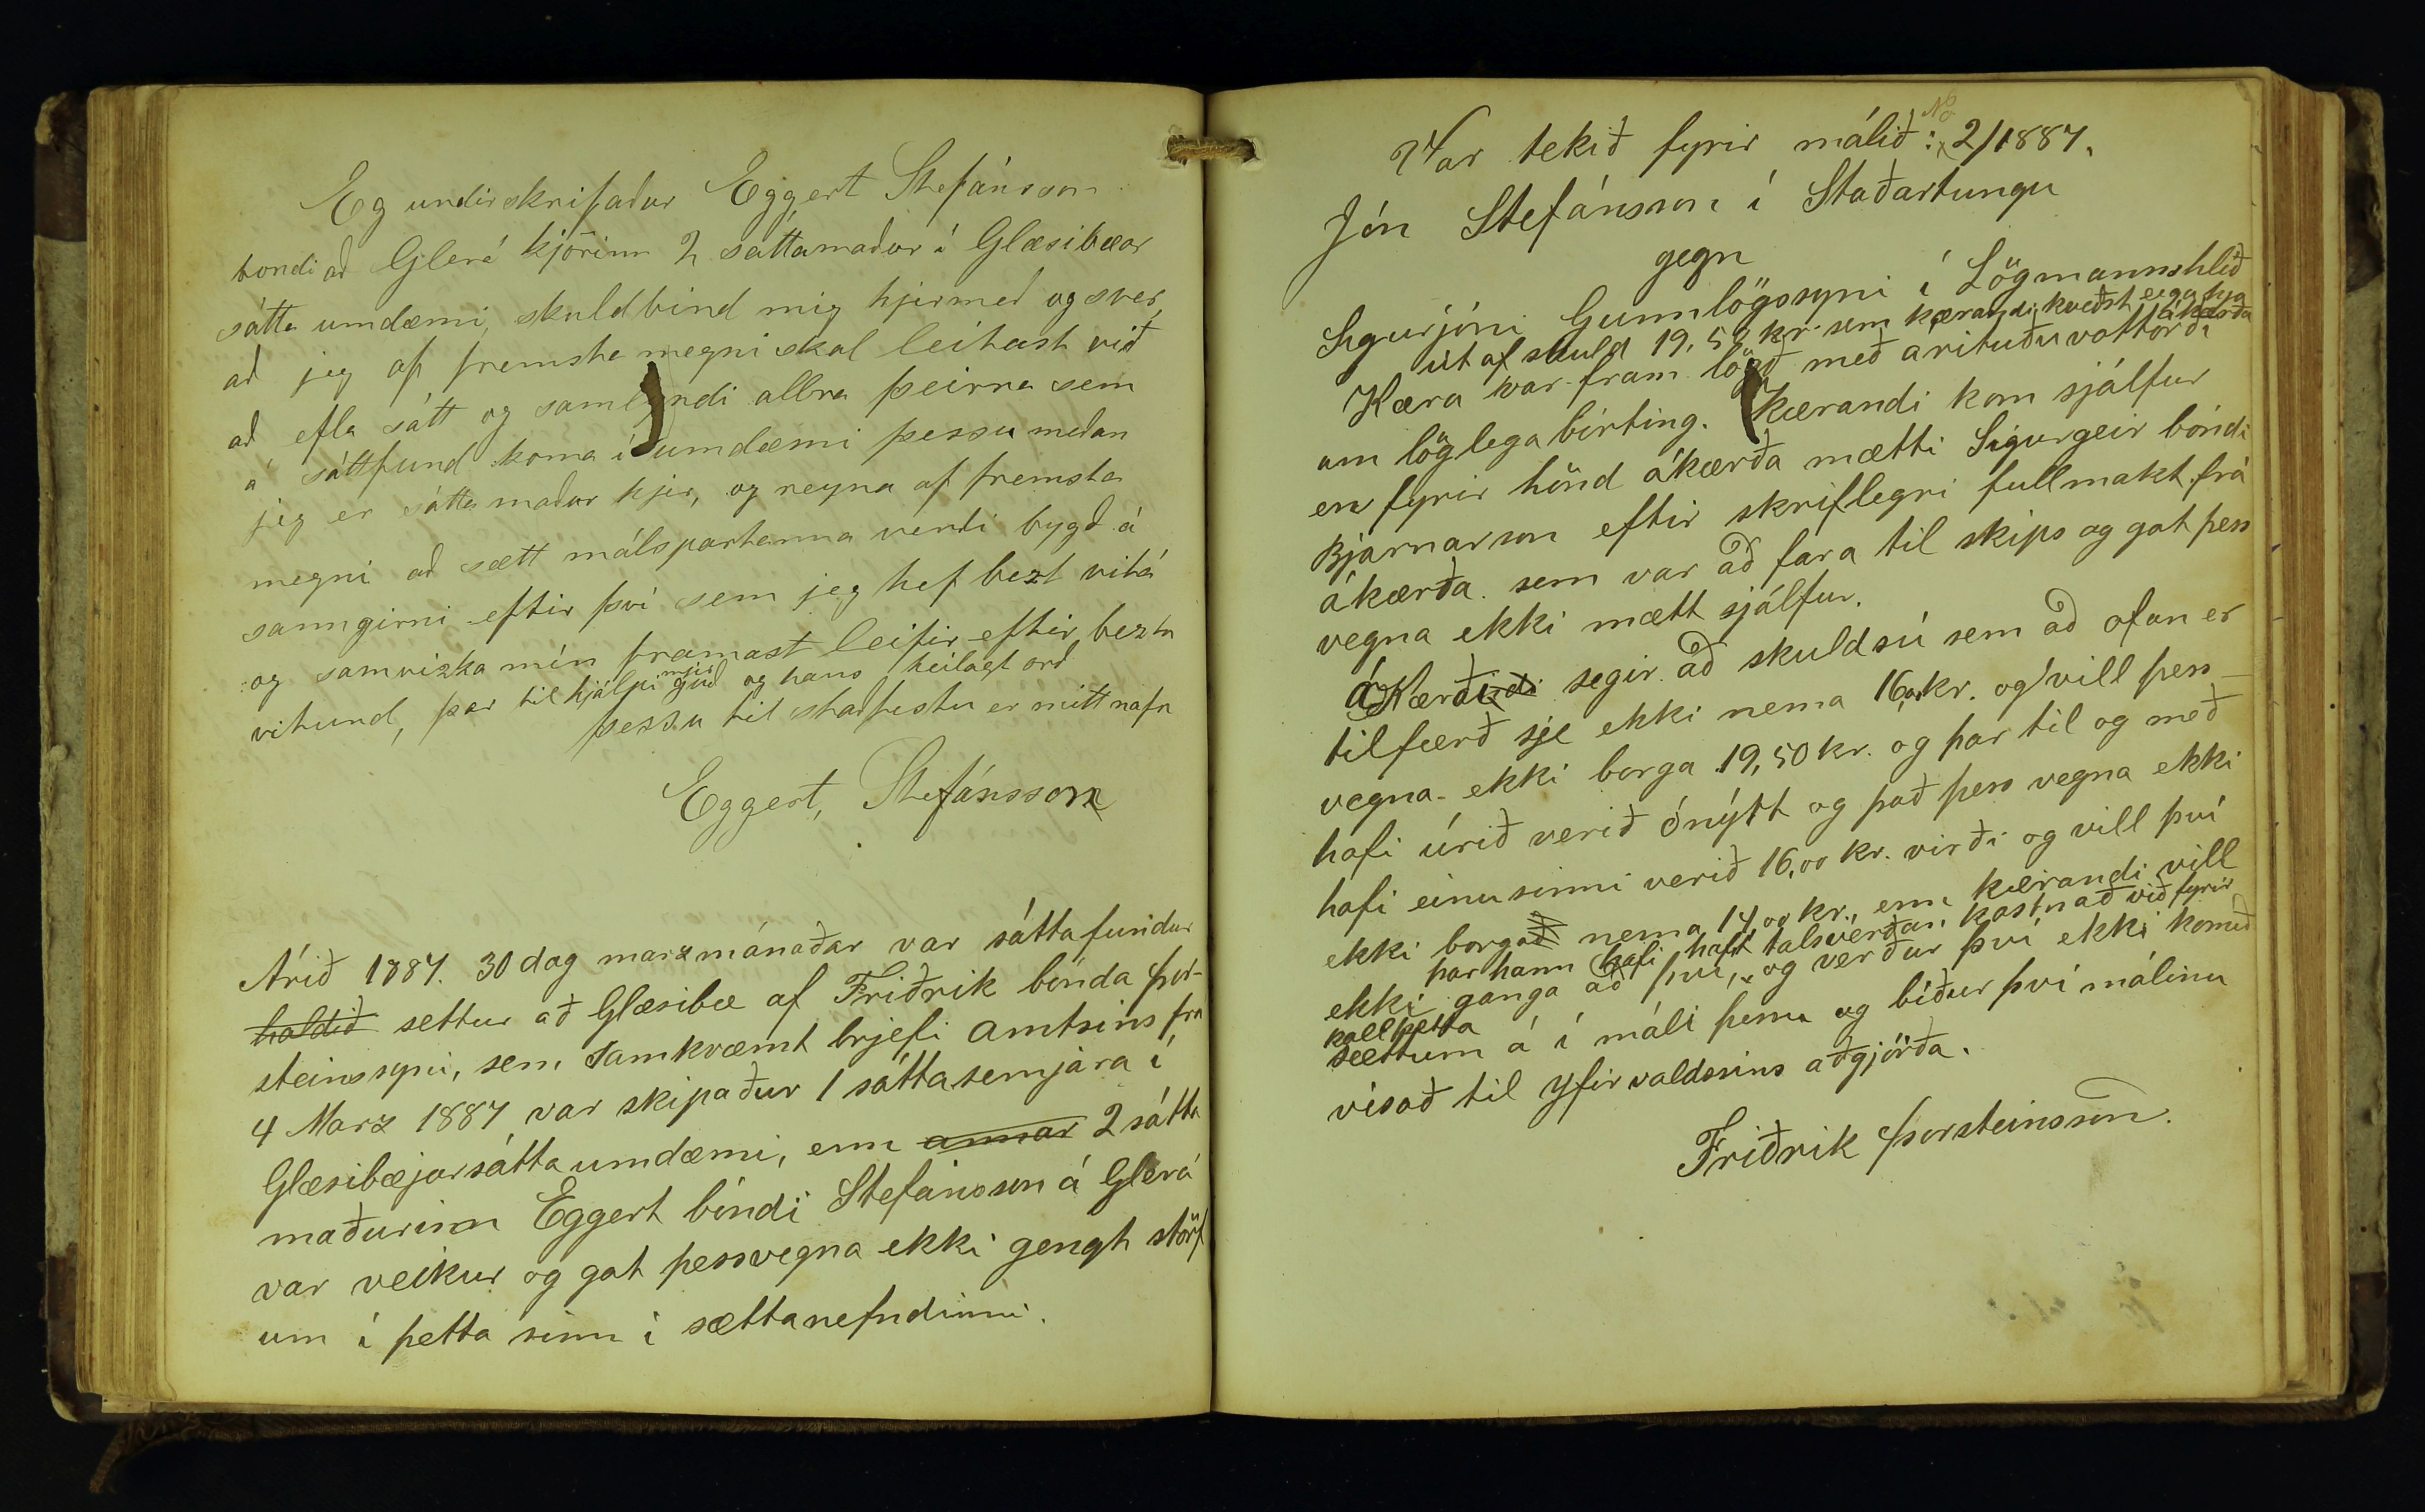 Eg undirskrifaður Eggert Stefánsson
bondi að Glerá kjörinn 2 sáttamaður i Glæsibæar
sátta umdæmi, skuldbind mig hjermeð og sver,
að jeg af fremsta megni skal leitast við
að efla sátt og samlyndi allra þeirra sem
á sáttfund koma í umdæmi þessu meðan
jeg er sátta maður hjer, og reyna af fremsta
megni að sætt málspartanna verði bygð á
sanngirni eftir því sem jeg hef bezt vit á
og samvizka mín framast leifir eftir bezta
vitund, þar til hjálpi mjer guð og hans heilagt orð
þessu til staðfestu er mitt nafn
Eggert, Stefánsson
Árið 1887. 30 dag marzmánaðar var sáttafundur
haldið settur að Glæsibæ af Friðrik bónda Þor-
steinssyni, sem samkvæmt brjefi amtsins frá
4 Marz 1887 var skipaður 1 sáttasemjara í
Glæsibæjarsáttaumdæmi, enn annar 2 sátta
maðurinn Eggert bóndi Stefánsson á Glerá
var veikur og gat þessvegna ekki gengt störf
um í þetta sinn i sættanefndinni.
Var tekið fyrir málið: No 2/1887.
Jón Stefánsson í Staðartungu
gegn
Sigurjóni Gunnlögssyni í Lögmannshlíð
út af skuld 19,50 kr. sem kærandi kveðst eiga hja ákærða
Kæra var fram lögð með árituðu vottorði
um löglega birting. Kærandi kom sjálfur
en fyrir hönd ákærða mætti Sigurgeir bóndi
Bjarnarson eftir skriflegri fullmakt frá
ákærða sem var að fara til skips og gat þess
vegna ekki mætt sjálfur.
ákærði segir að skuld sú sem að ofan er
tilfærð sje ekki nema 16,00 kr. og vill þess
vegna ekki borga 19,50 kr. og þar til og með
hafi úrið verið ónýtt og það þess vegna ekki
hafi einusinni verið 16,00 kr. virði og vill því
ekki borgað nema 14,00 kr., enn kærandi vill
þar hann hafi haft talsverðan kostnað við fyrir
ekki ganga að því, og verður því ekki komið
kall þetta
sættum á í máli þessu og biður því málinu
vísað til yfirvaldsins aðgjörða.
Friðrik Þorsteinsson.